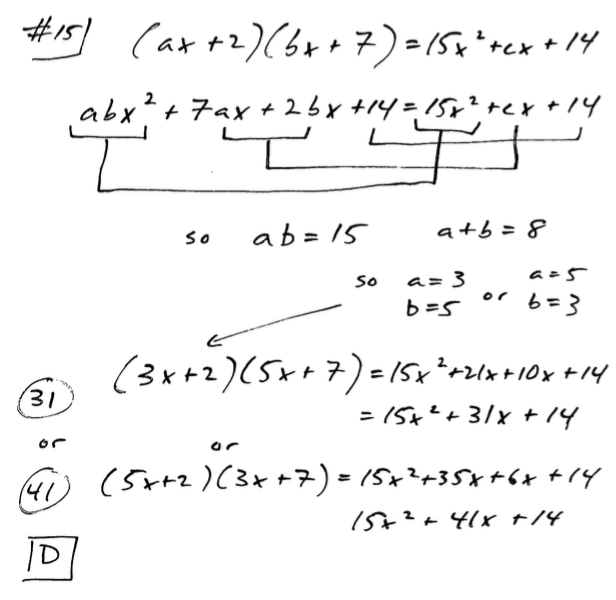 #15 (ax + 2)(bx + 7) = 15x² + cx + 14
abx² + 7ax + 2bx + 14 = 15x² + cx + 14
so ab = 15 a + b = 8
so a = 3 b = 5 or a = 5 b = 3
(3x + 2)(5x + 7) = 15x² + 21x + 10x + 14
31 = 15x² + 31x + 14
or or
41 (5x + 2)(3x + 7) = 15x² + 35x + 6x + 14
15x² + 41x + 14
D